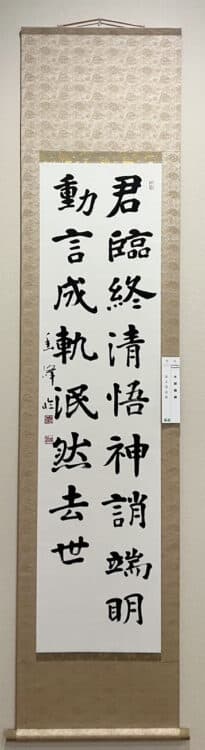 君臨終清悟神誚端明
動言成軌泯然去世